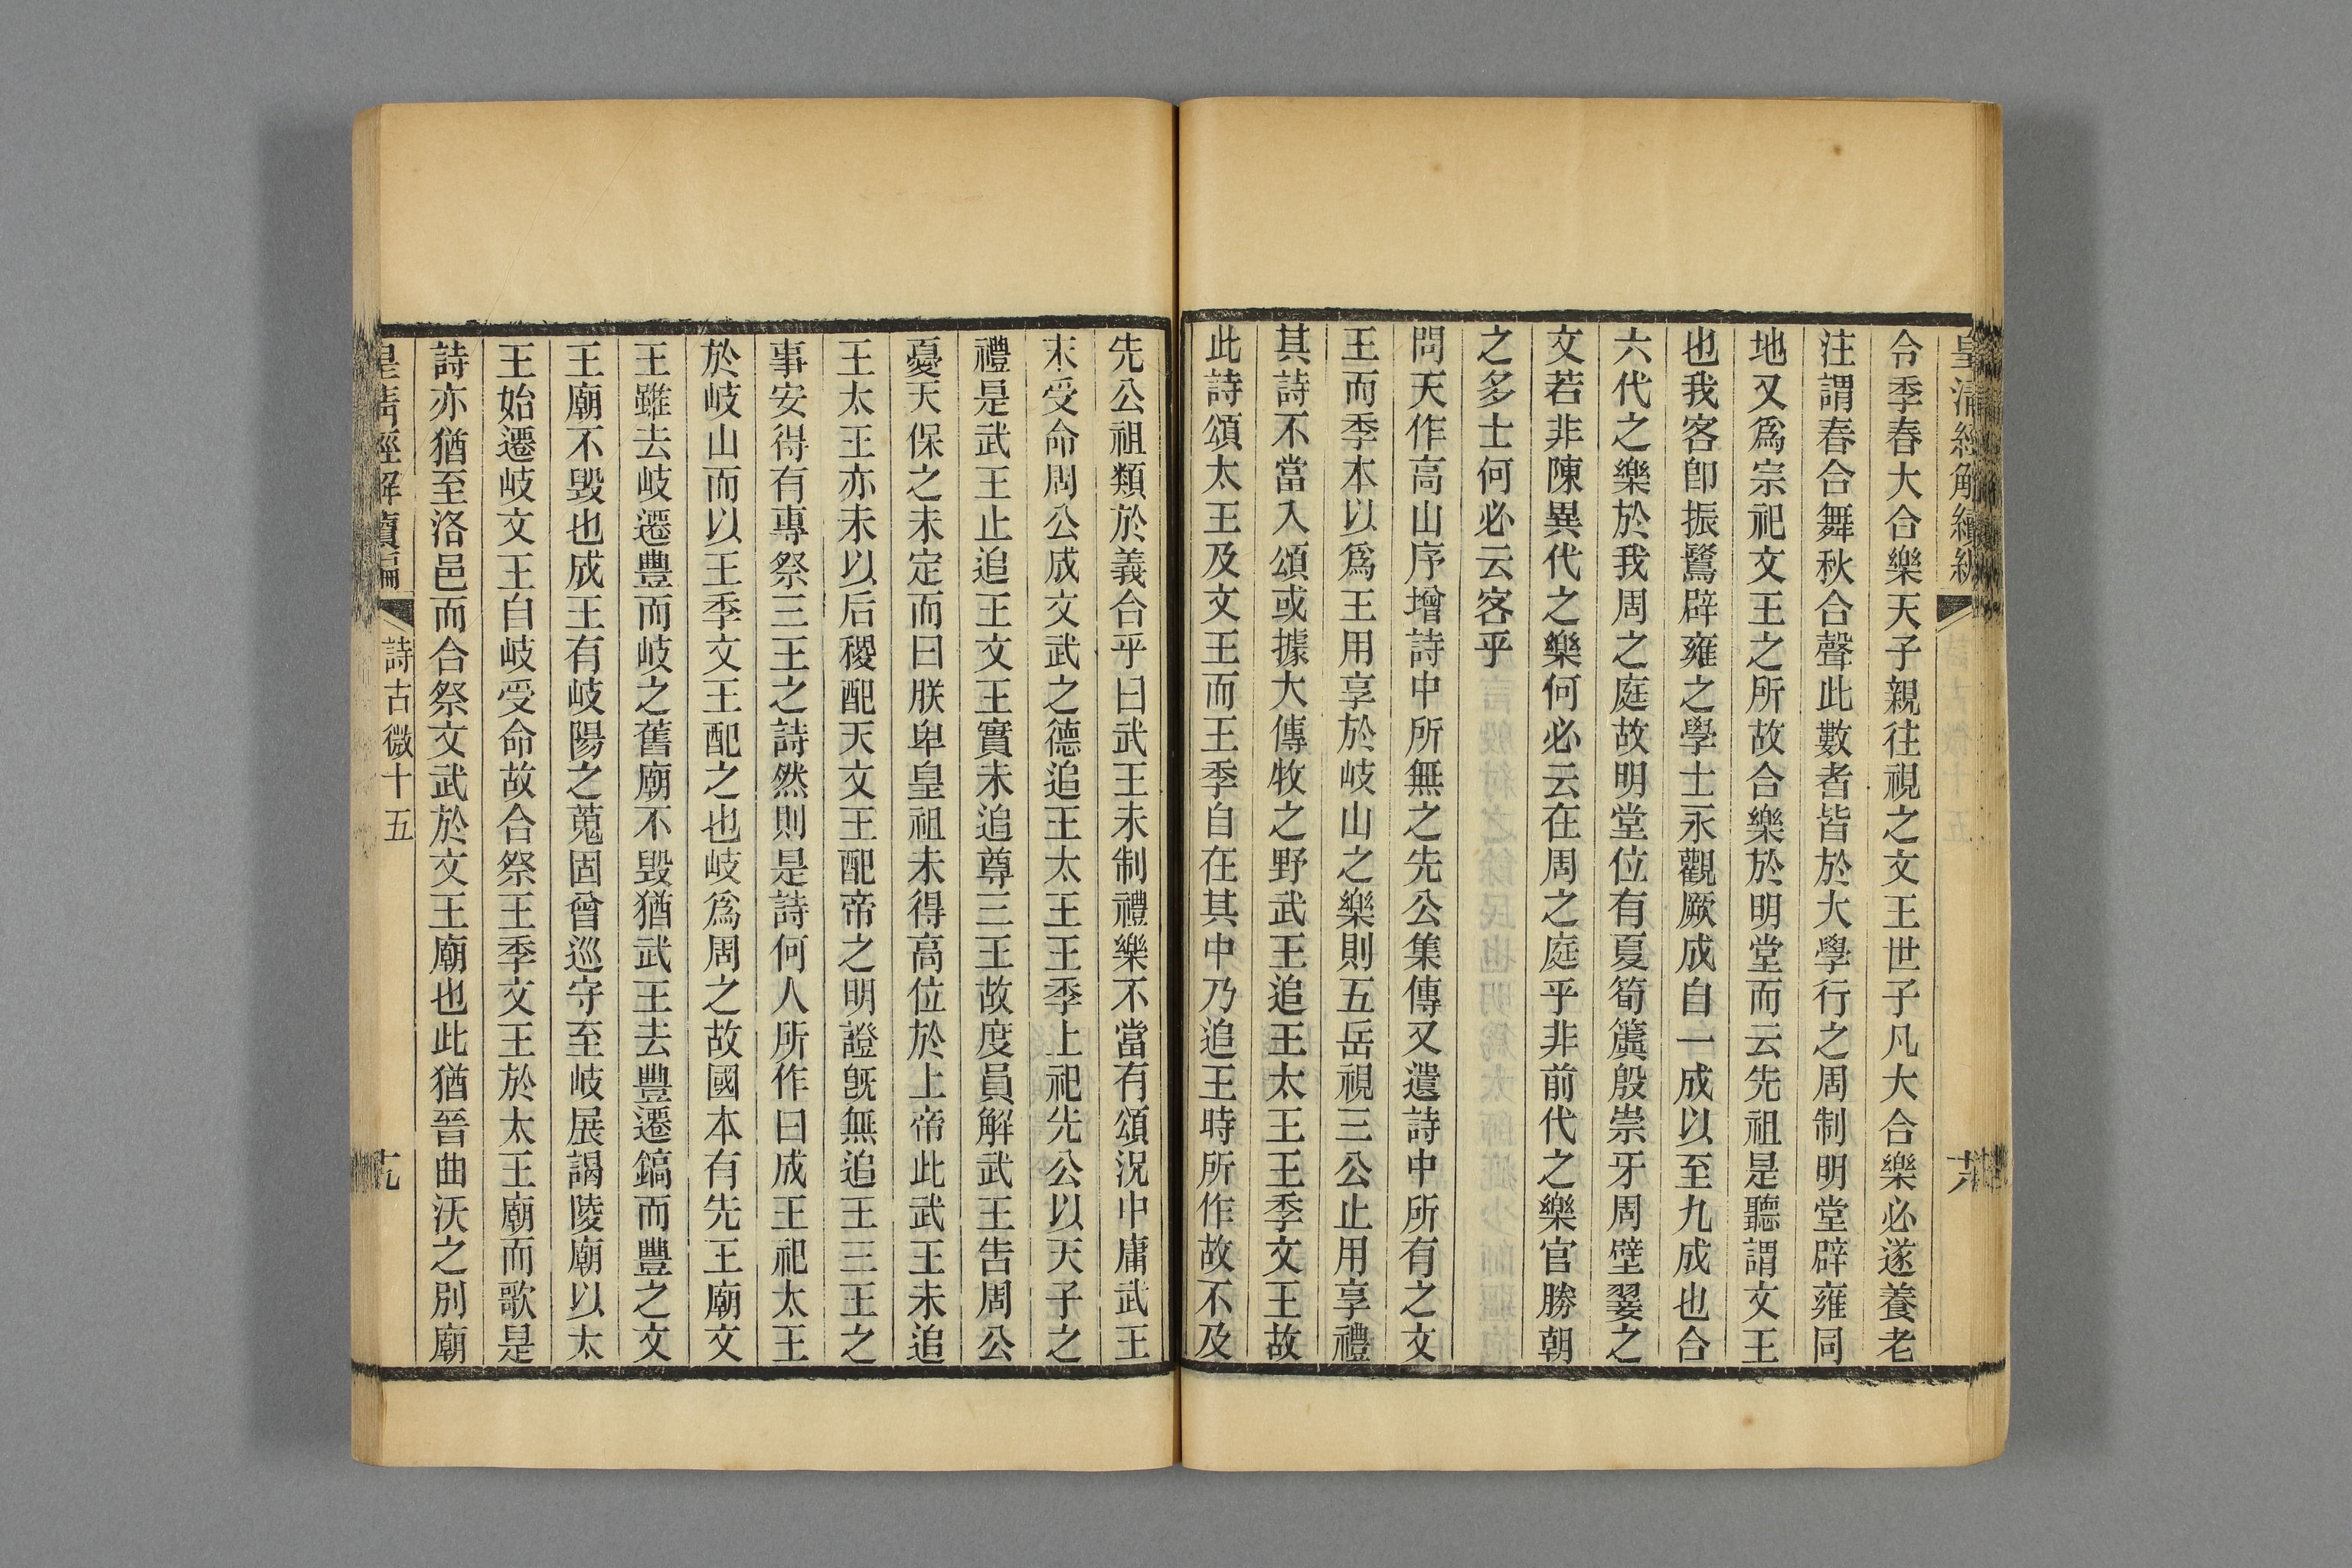 皇清經解續編
令季春大合樂天子親往視之文王世子凡大合樂必遂養老
注謂春合舞秋合聲此數者皆於大學行之周制明堂辟雍同
地又爲宗祀文王之所故合樂於明堂而云先祖是聽謂文王
也我客卽振鷺辟雍之學士永觀厥成自一成以至九成也合
六代之樂於我周之庭故明堂位有夏筍簴殷崇牙周璧翣之
文若非陳異代之樂何必云在周之庭乎非前代之樂官勝朝
之多士何必云客乎
問天作高山序增詩中所無之先公集傳又遺詩中所有之文
王而季本以爲王用享於岐山之樂則五岳視三公止用享禮
其詩不當入頌或據大傳牧之野武王追王太王王季文王故
此詩頌太王及文王而王季自在其中乃追王時所作故不及
先公祖類於義合乎曰武王未制禮樂不當有頌況中庸武王
末受命周公成文武之德追王太王王季上祀先公以天子之
禮是武王止追王文王實未追尊三王故度員解武王告周公
憂天保之未定而曰朕卑皇祖未得高位於上帝此武王未追
王太王亦未以后稷配天文王配帝之明證旣無追王三王之
事安得有專祭三王之詩然則是詩何人所作曰成王祀太王
於岐山而以王季文王配之也岐爲周之故國本有先王廟文
王雖去岐遷豐而岐之舊廟不毀猶武王去豐遷鎬而豐之文
王廟不毀也成王有岐陽之蒐固曾巡守至岐展謁陵廟以太
王始遷岐文王自岐受命故合祭王季文王於太王廟而歌是
詩亦猶至洛邑而合祭文武於文王廟也此猶晉曲沃之別廟
皇清經解續編
詩古微十五